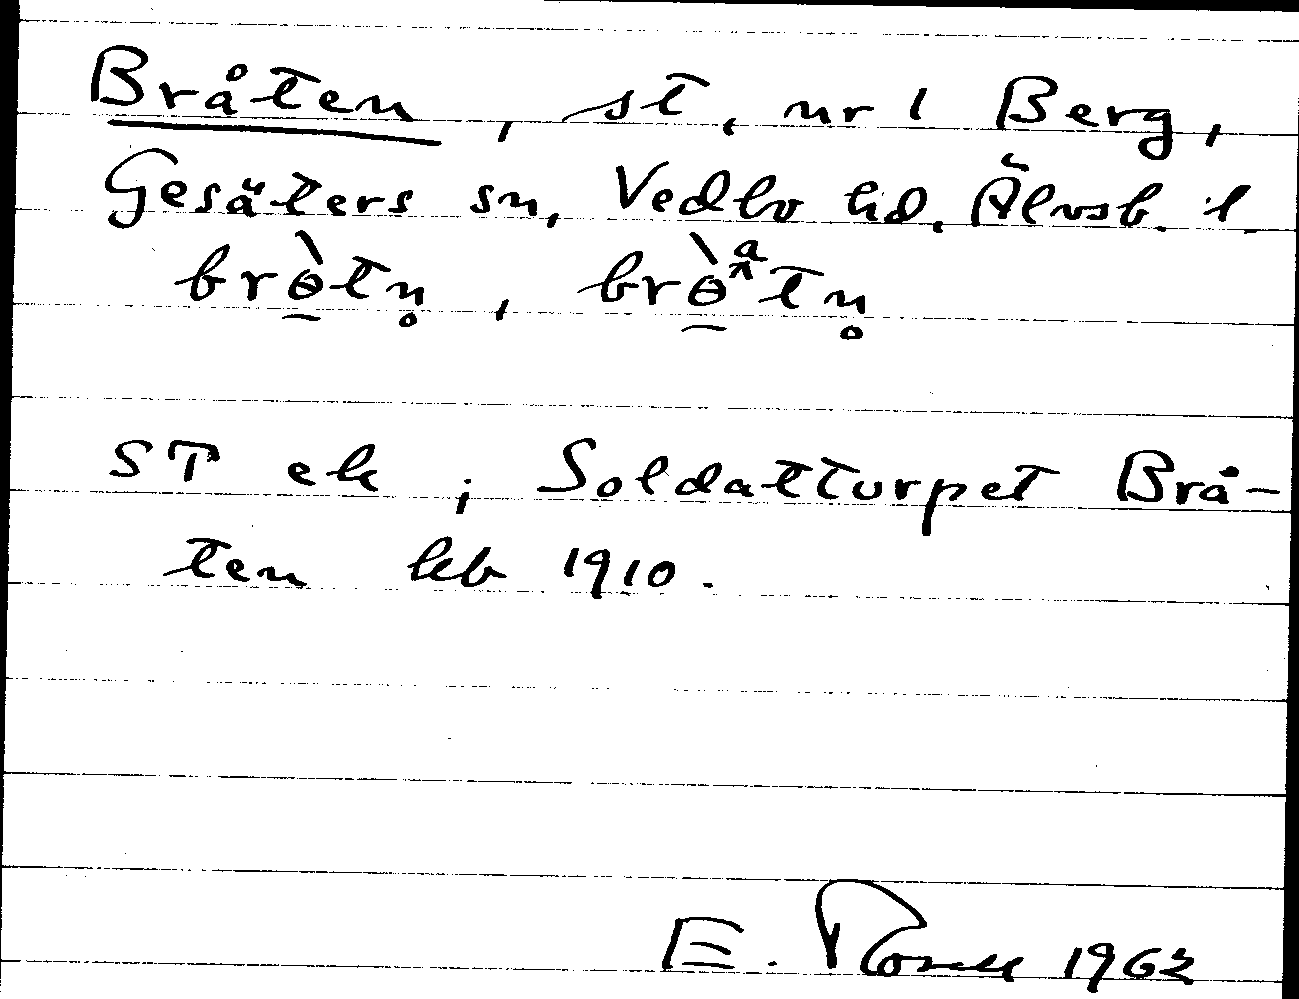 Bråten, st, nr 1 Berg,
Gesäters sn, Vedbo hd. Älvsb. l
brɵ̀tn̥, brɵ̀ᵃtn̥
ST ek; Soldattorpet Brå-
ten hb 1910.
E. Rosell 1962